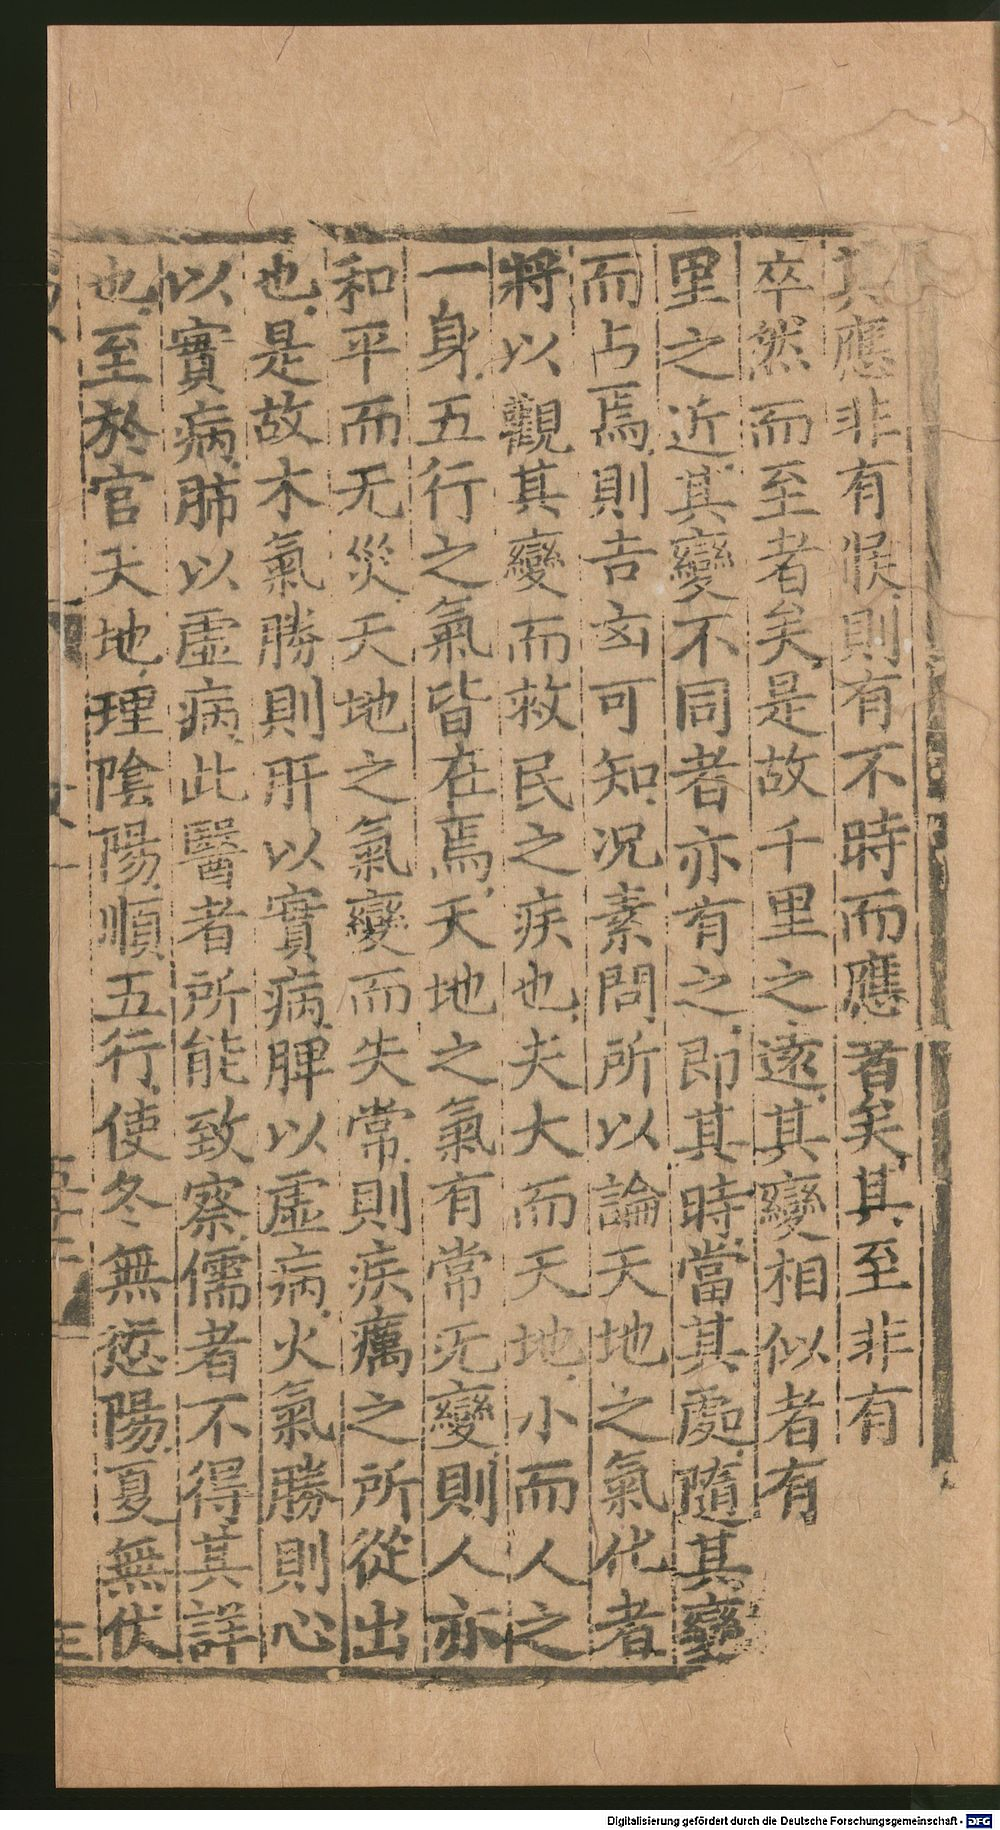 其應非有候則有不時而應者矣其至非有
卒然而至者矣是故千里之遠其變相似者有
里之近其變不同者亦有之即其時當其處隨其變
而占焉則吉㓙可知况素問所以論天地之氣化者
將以觀其變而救民之疾也夫大而天地小而人之
一身五行之氣皆在焉天地之氣有常无變則人亦
和平而无災天地之氣變而失常則疾癘之所從出
也是故木氣勝則肝以實病脾以虛病火氣勝則心
以實病肺以虛病此醫者所能致察儒者不得其詳
也至於官天地理陰陽順五行使冬無愆陽夏無伏
三
Digitalisierung gefördert durch die Deutsche Forschungsgemeinschaft - DFG